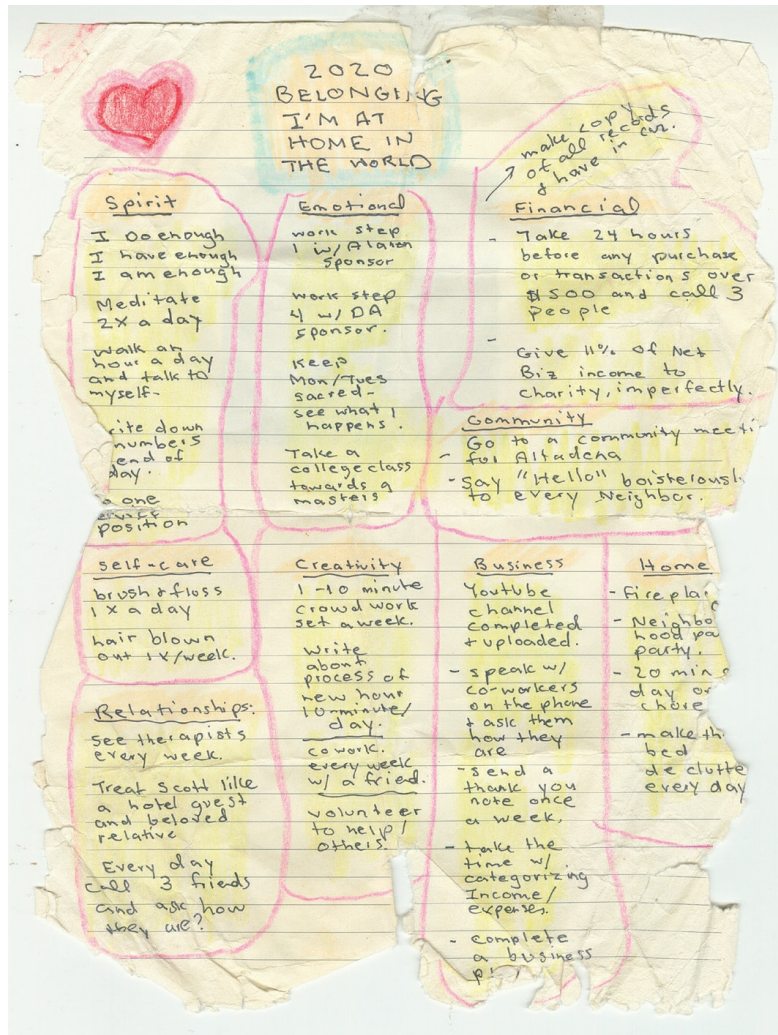 2020
BELONGING
I'M AT
HOME IN
THE WORLD
make copy
of all records
& have in car.
Spirit
I Do enough
I have enough
I am enough
Meditate
2X a day
walk an
hour a day
and talk to
myself-
rite down
numbers
end of
day.
one
position
Emotional
work step
1 w/ Alanon
sponsor
work step
4 w/ DA
sponsor.
Keep
Mon/Tues
sacred-
see what
happens.
Take a
college class
towards a
masters
Financial
- Take 24 hours
before any purchase
or transactions over
$500 and call 3
people
- Give 11% of Net
Biz income to
charity, imperfectly.
Community
- Go to a community meeti
for Altadena
- Say "Hello" boisterousl
to every Neighbor.
self-care
brush & floss
1 X a day
hair blown
out 1X/week.
Relationships:
see therapists
every week.
Treat Scott like
a hotel guest
and beloved
relative
Every day
call 3 friends
and ask how
they are?
Creativity
1 -10 minute
crowd work
set a week.
Write
about
process of
new hour
10-minute/
day.
cowork.
every week
w/ a friend.
volunteer
to help/
others.
Business
Youtube
channel
completed
+ uploaded.
- speak w/
co-workers
on the phone
+ ask them
how they
are
- send a
thank you
note once
a week.
- take the
time w/
categorizing
Income/
expenses.
- complete
a business
pl
Home
- Firepla
- Neighbo
hood pa
party.
- 20 min
day or
chore
- make th
bed
de clutte
every day